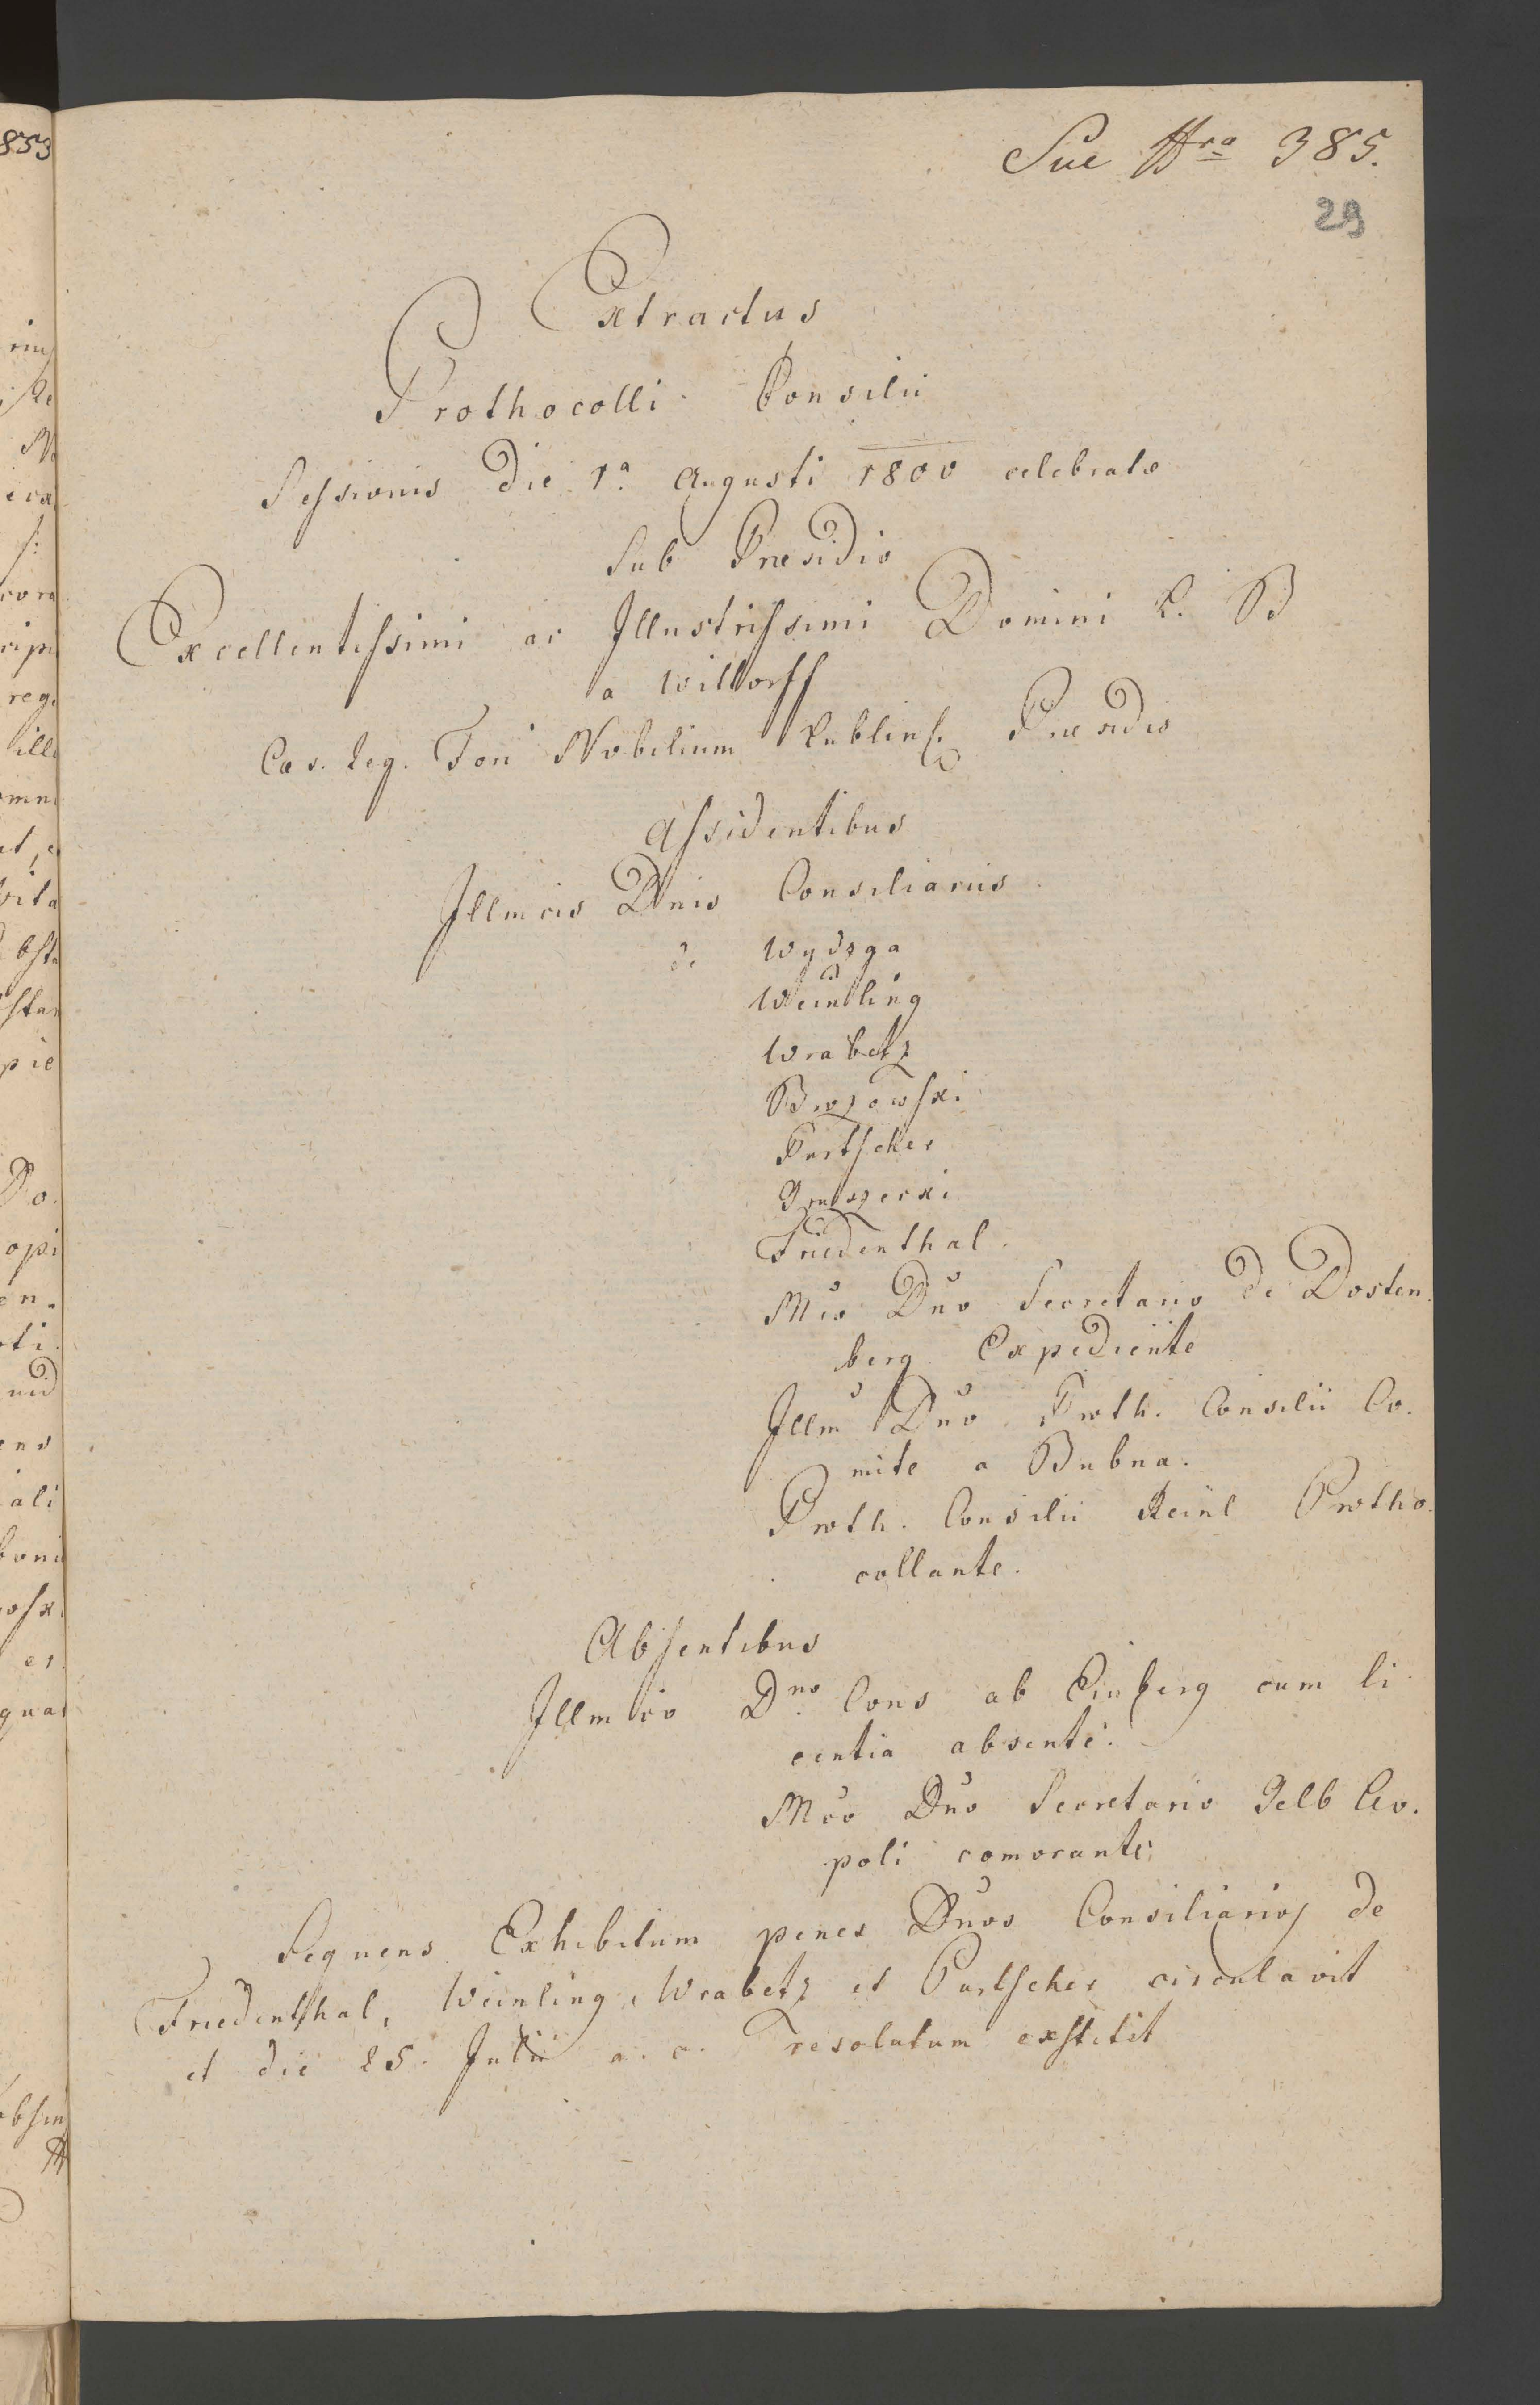 Sue Nro 385.
29
Extractus
Prothocolli Consilii
Sessionis Die 1a Augusti 1800 celebratæ
Sub Præsidio
Excellentissimi ac Illustrissimi Domini L. B
a Wittorff
Cæs. Reg. Fori Nobilium Lublins. Præsidis
Assidentibus
Illmcis Dnis Consiliariis
de Wydzga
Weinling
Wrabetz
Brozowski
Purtscher
Gruszecki
Friedenthal.
Mco Dno Secretario de Dosten
berg Expediente
Illm Dno Proth. Consilii Co.
mite a Bubna.
Proth. Consilii Reinl Protho.
collante.
Absentibus
Illmico Dno Cons ab Einberg cum li
centia absente.
Mco Dno Secretario Gelb Leo.
poli comorante
Sequens Exhibitum penes Dnos Consiliarios de
Friedenthal, Weinling, Wrabetz et Purtscher circulavit
et die 25. Julii a. c. resolutum exstitit